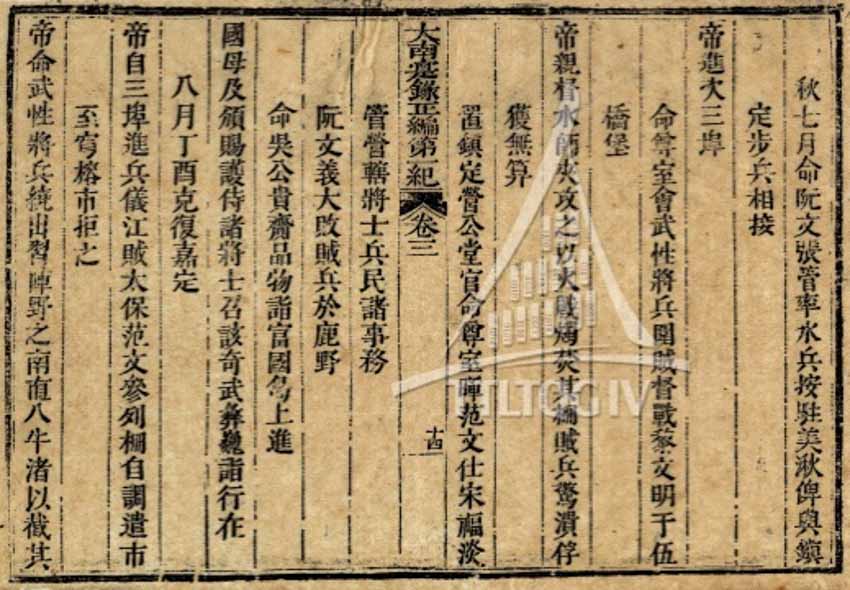 秋七月命阮文張管率水兵按駐美湫俾與鎮
定步兵相接
帝進次三埠
命尊室會武性將兵圍賊督戰黎文明于伍
橋堡
帝親督水師夾攻之以火戰焚其柵賊兵驚潰俘
獲無算
置鎮定營公堂官命尊室暉范文仕宋福淡
大南寔錄正編第一紀 卷三 十四
管營轄將士兵民諸事務
阮文義大敗賊兵於鹿野
命吳公貴齎品物詣富國島上進
國母及頒賜護侍諸將士召該奇武彝巍詣行在
八月丁酉克復嘉定
帝自三埠進兵儀江賊太保范文參列柵自調遣市
至穹榕市拒之
帝命武性將兵繞出習陣野之南直八牛渚以截其
TTLTQG IV